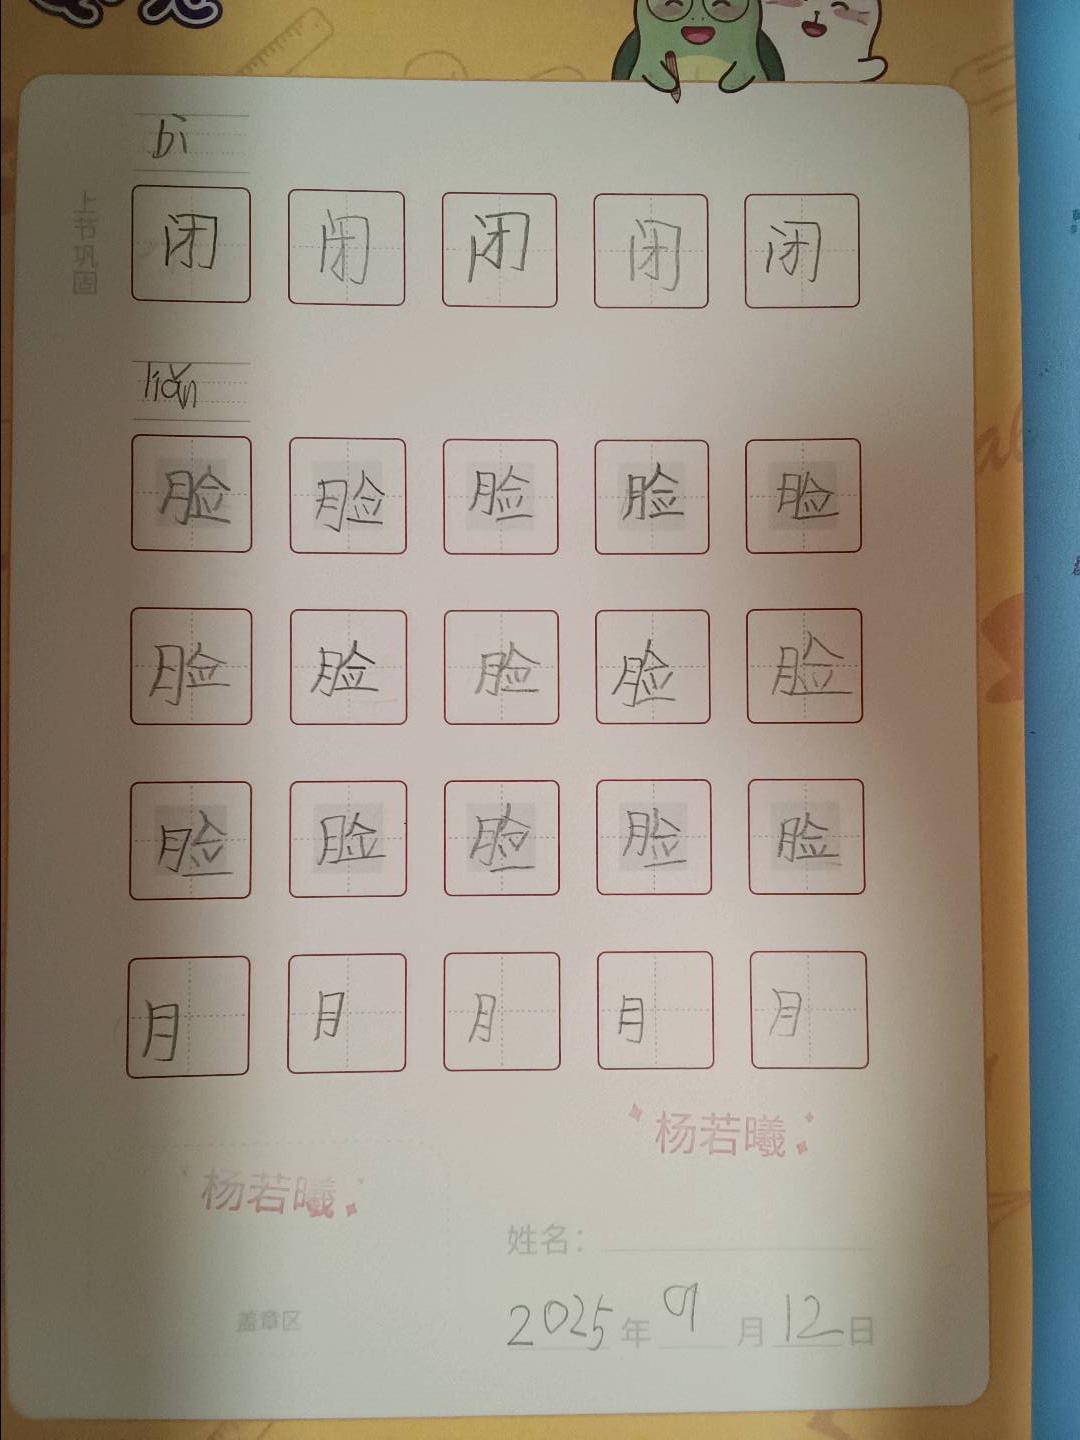 bì
上节巩固
闭 闭 闭 闭 闭
liǎn
脸 脸 脸 脸 脸
脸 脸 脸 脸 脸
脸 脸 脸 脸 脸
月 月 月 月 月
杨若曦
杨若曦
姓名：
盖章区
2025年 9月 12日